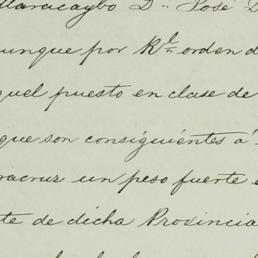 Maracaybo Dn. José D
unque por Rl. orden d
quel puesto en clase de
que son consiguientes á
racruz un peso fuerte e
te de dicha Provincia